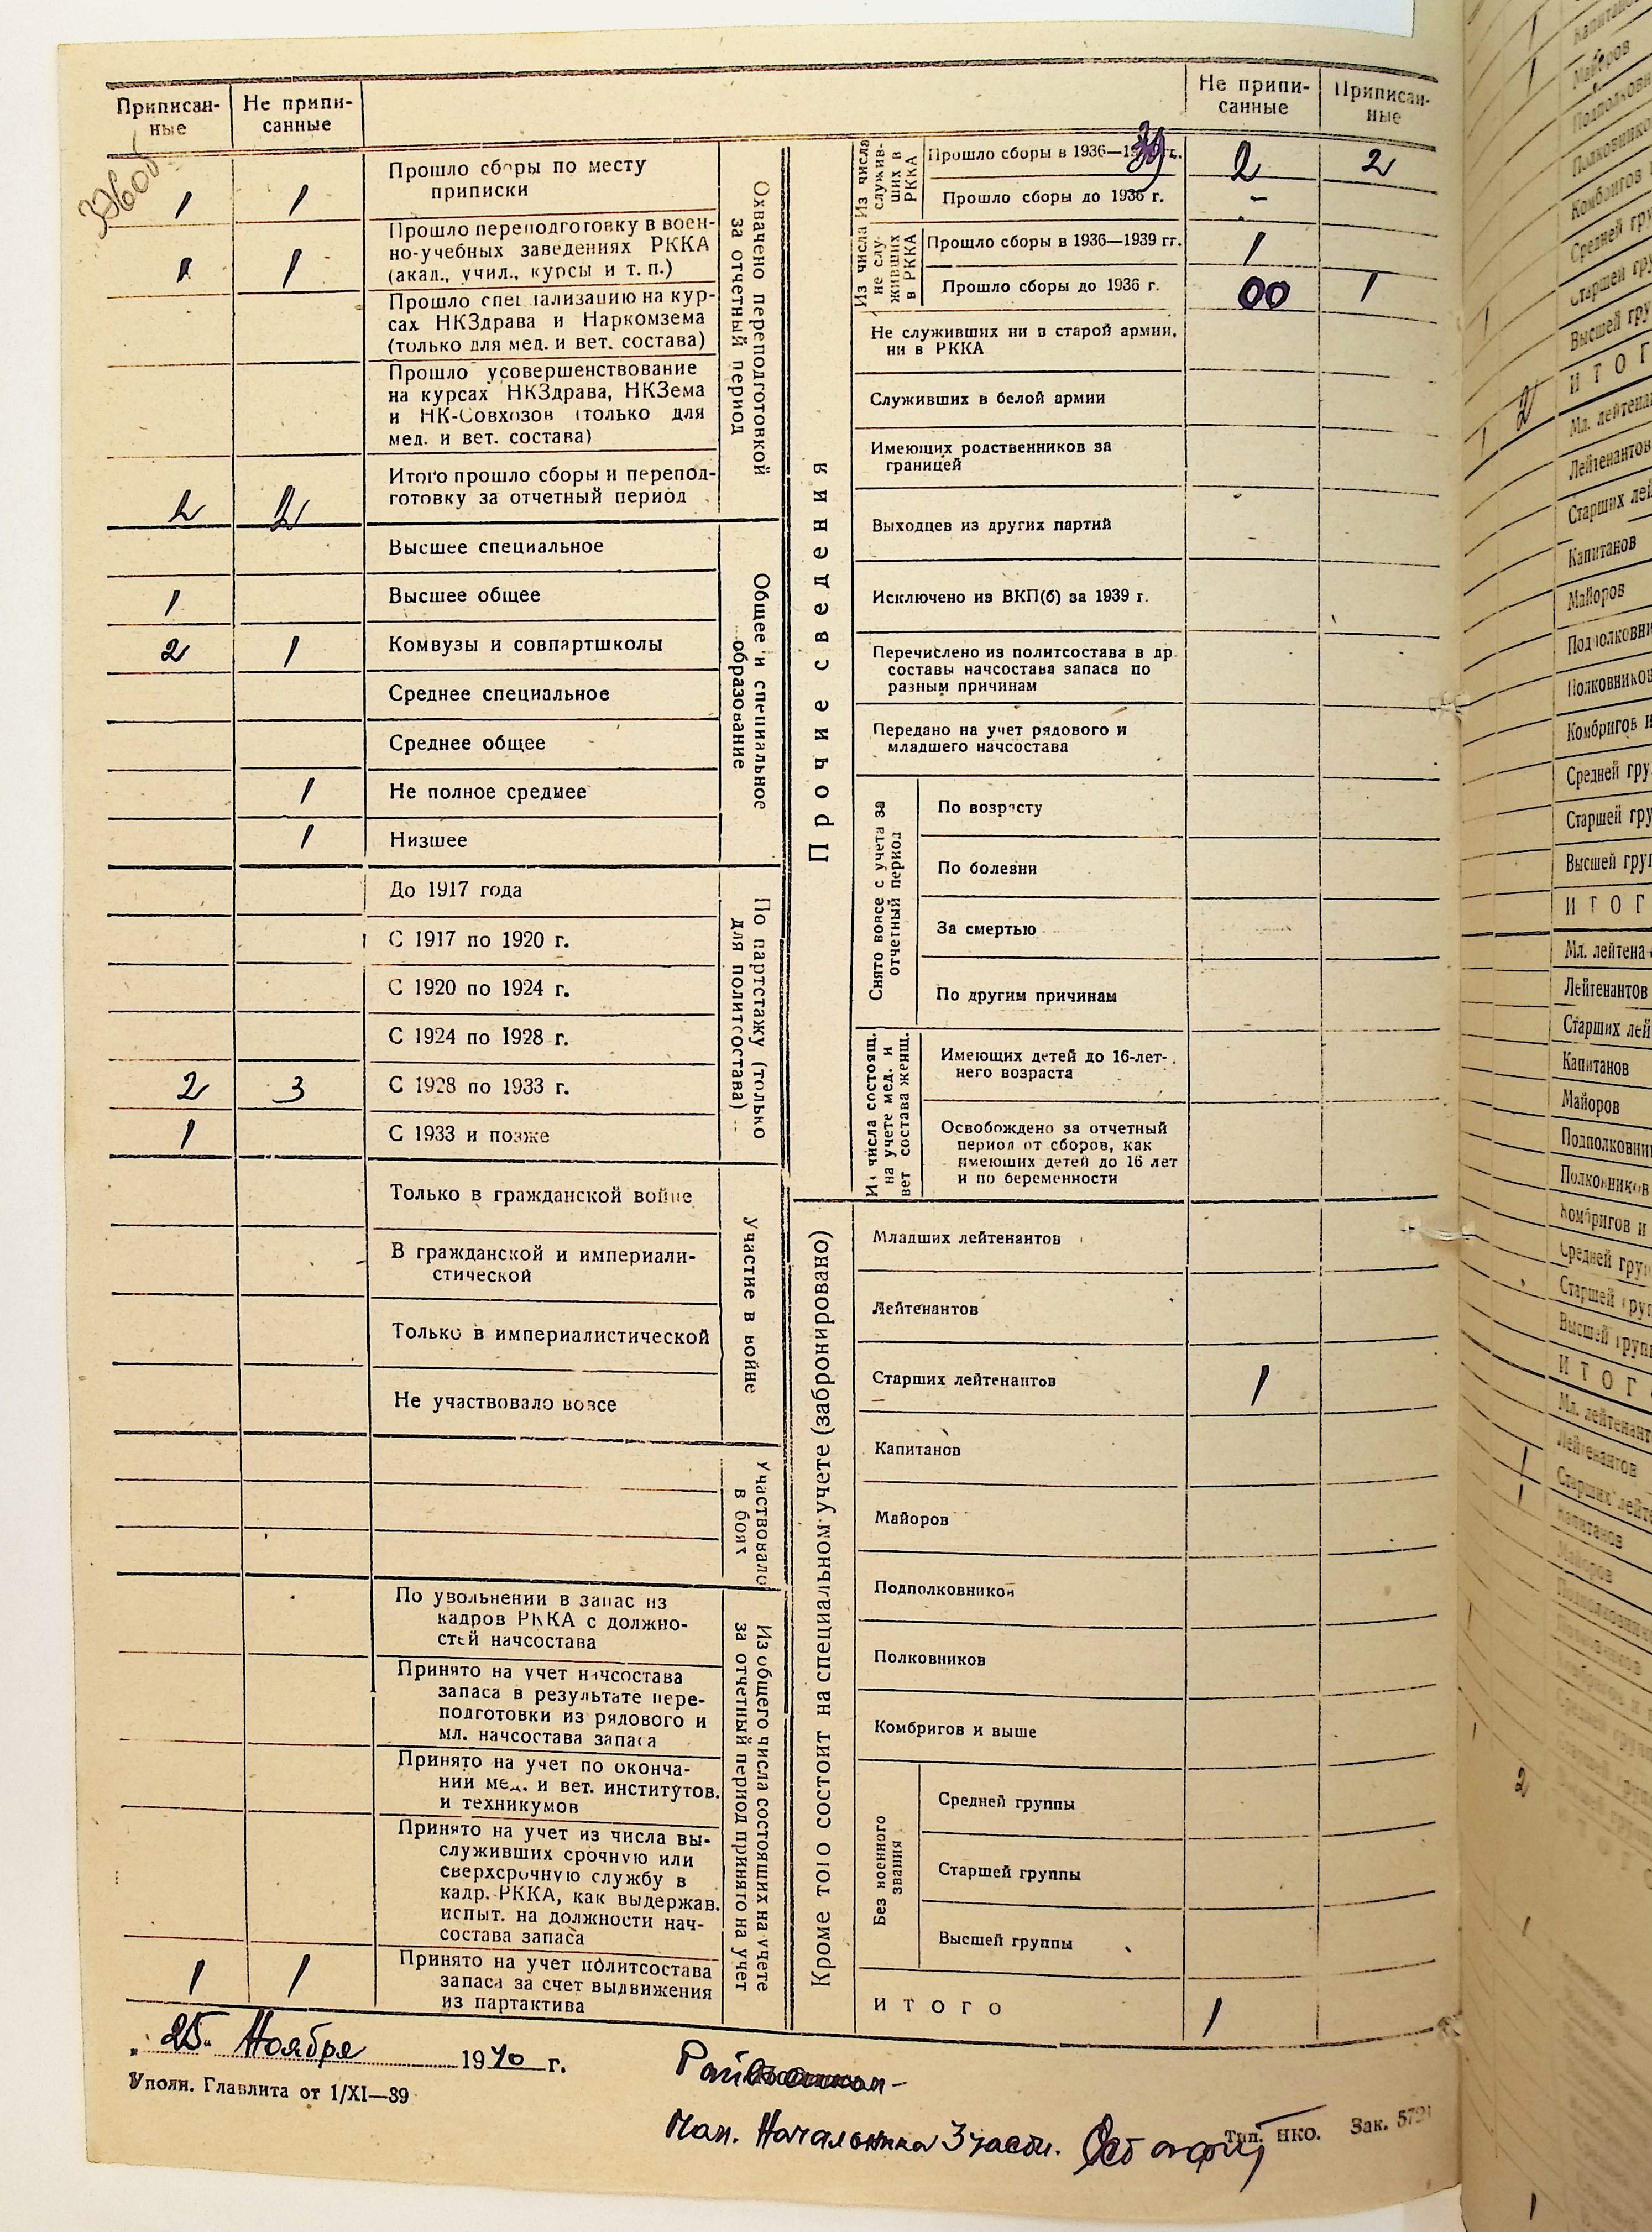 Приписан-
ные
Не припи-
санные
Не припи-
санные
Приписан-
ные
1 1 Прошло сборы по месту
приписки
1 1 Прошло переподготовку в воен-
но-учебных заведениях РККА
(акад., учил., курсы и т. п.)
Прошло специализацию на кур-
сах НКЗдрава и Наркомзема
(только для мед. и вет. состава)
Прошло усовершенствование
на курсах НКЗдрава, НКЗема
и НК-Совхозов (только для
мед. и вет. состава)
2 2 Итого прошло сборы и перепод-
готовку за отчетный период
Охвачено переподготовкой
за отчетный период
Высшее специальное
1 Высшее общее
2 1 Комвузы и совпартшколы
Среднее специальное
Среднее общее
1 Не полное среднее
1 Низшее
Общее и специальное
образование
До 1917 года
С 1917 по 1920 г.
С 1920 по 1924 г.
С 1924 по 1928 г.
2 3 С 1928 по 1933 г.
1 С 1933 и позже
По партстажу (только
для политсостава)
Только в гражданской войне
В гражданской и империали-
стической
Только в империалистической
Не участвовало вовсе
Участие в войне
Участвовало
в боях
По увольнении в запас из
кадров РККА с должно-
стей начсостава
Принято на учет начсостава
запаса в результате пере-
подготовки из рядового и
мл. начсостава запаса
Принято на учет по оконча-
нии мед. и вет. институтов.
и техникумов
Принято на учет из числа вы-
служивших срочную или
сверхсрочную службу в
кадр. РККА, как выдержав.
испыт. на должности нач-
состава запаса
1 1 Принято на учет политсостава
запаса за счет выдвижения
из партактива
Из общего числа состоящих на учете
за отчетный период принято на учет
Прочие сведения
Из числа
служив-
ших в
РККА
Прошло сборы в 1936—1939 гг. 2 2
Прошло сборы до 1936 г. -
Из числа
не слу-
живших
в РККА
Прошло сборы в 1936—1939 гг. 1
Прошло сборы до 1936 г. 00 1
Не служивших ни в старой армии,
ни в РККА
Служивших в белой армии
Имеющих родственников за
границей
Выходцев из других партий
Исключено из ВКП(б) за 1939 г.
Перечислено из политсостава в др
составы начсостава запаса по
разным причинам
Передано на учет рядового и
младшего начсостава
Снято вовсе с учета за
отчетный период
По возрасту
По болезни
За смертью
По другим причинам
Из числа состоящ.
на учете мед. и
вет состава женщ.
Имеющих детей до 16-лет-
него возраста
Освобождено за отчетный
период от сборов, как
имеющих детей до 16 лет
и по беременности
Кроме того состоит на специальном учете (забронировано)
Младших лейтенантов
Лейтенантов
Старших лейтенантов 1
Капитанов
Майоров
Подполковников
Полковников
Комбригов и выше
Без военного
звания
Средней группы
Старшей группы
Высшей группы
ИТОГО 1
„25“ Ноября 1940 г.
Уполн. Главлита от 1/XI—39
Рай
Начальника 3 части.
Тип. НКО. Зак. 572
Капитанов
Майоров
ИТОГ
2
Капитанов
Майоров
ИТОГ
Лейтенантов
Капитанов
Майоров
ИТОГ
Лейтенантов